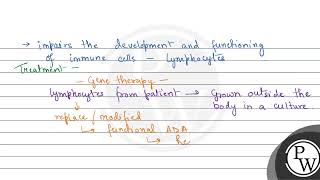 → impairs the development and functioning
of immune cells – lymphocytes
Treatment –
– Gene therapy –
lymphocytes from patient → Grown outside the
body in a culture.
replace/modified
↳ functional ADA
↳ he
PW